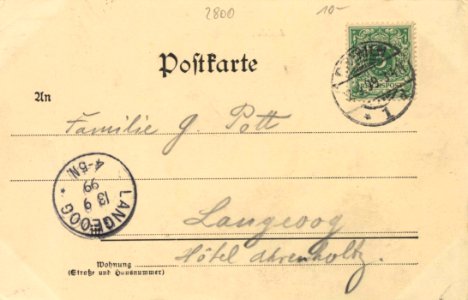 2800
10-
Postkarte
An
Familie G. Pott
LANGEOOG
13 9
99
4-5N.
Langeoog
Hôtel Ahrenholtz.
Wohnung
(Straße und Hausnummer)